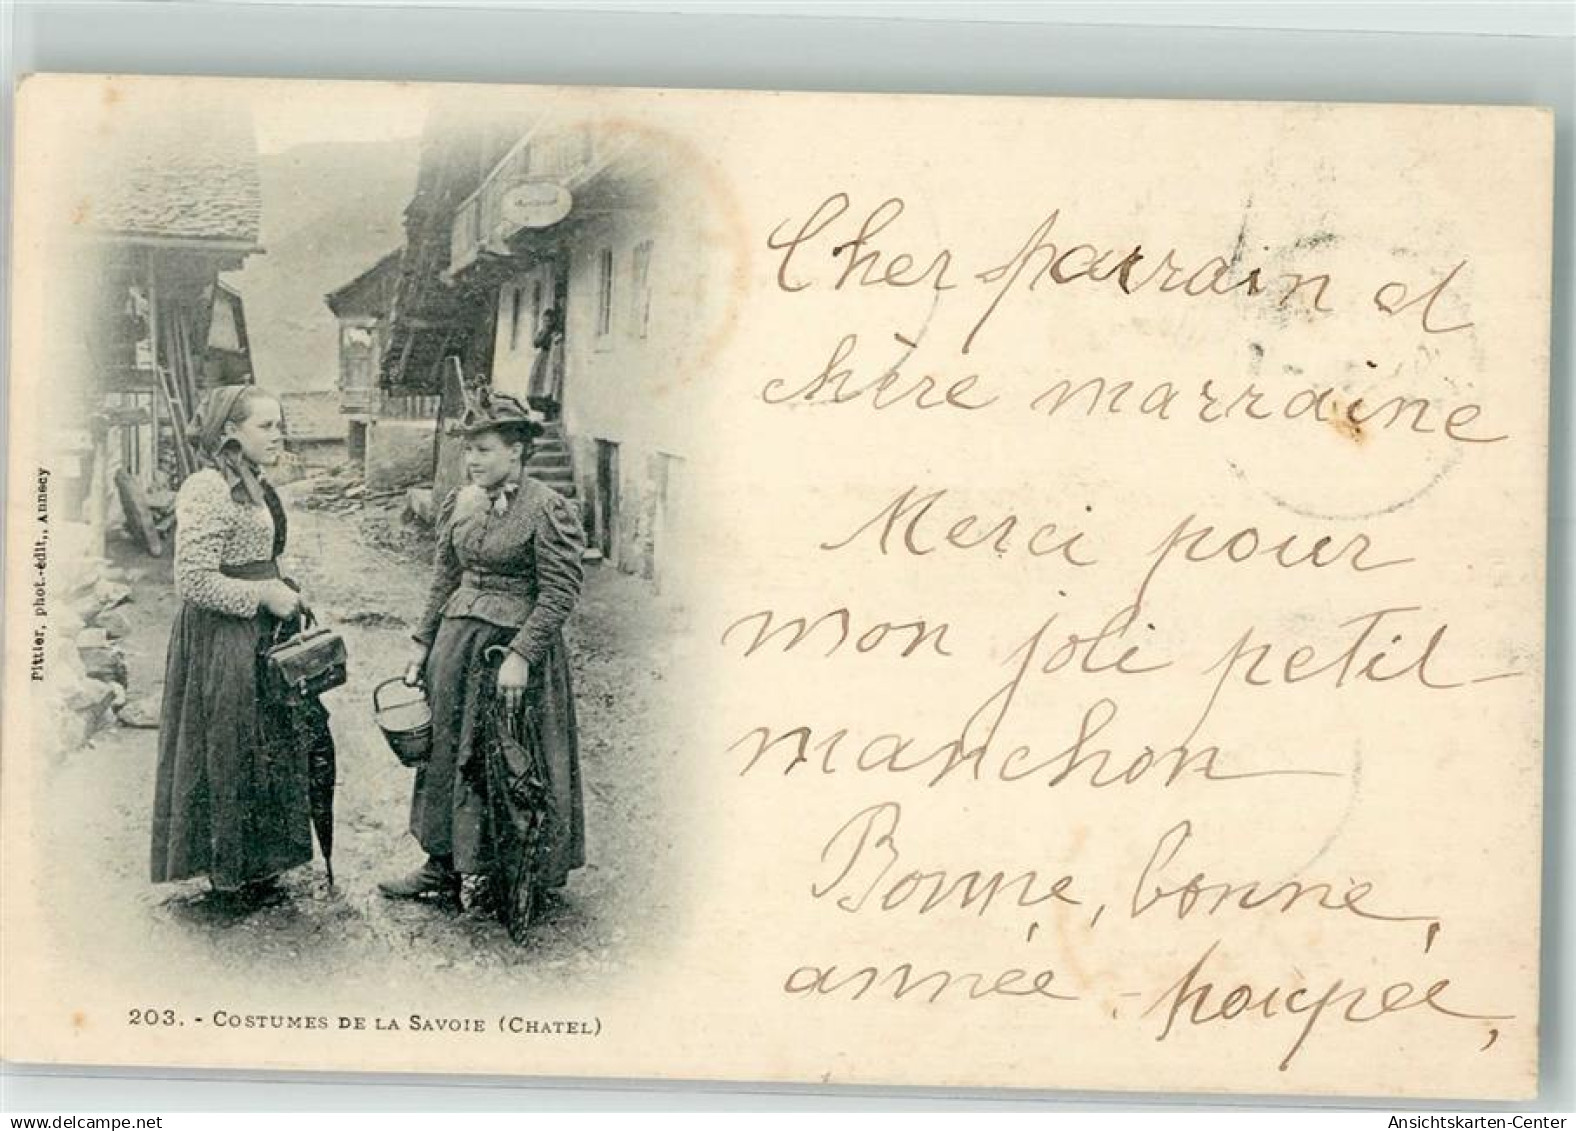 Cher parrain et
chère marraine
Merci pour
mon joli petit
manchon
Bonne, bonne
année - poupée,
Pittier, phot.-édit., Annecy
203. - COSTUMES DE LA SAVOIE (CHATEL)
Ansichtskarten-Center